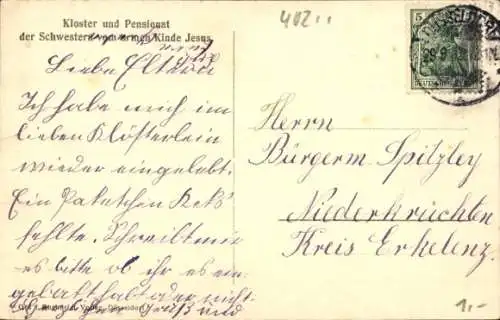 402
Kloster und Pensionat
der Schwestern vom armen Kinde Jesus
5
DÜSSELDORF
Liebe Eltern
Ich habe mich im
lieben Klösterlein
wieder eingelebt.
Ein Paketchen Keks
fehlte. Schreibt mir
es bitte ob ihr es ein-
gepackt habt oder nicht
und
Herrn
Bürgerm. Spitzley
Niederkrüchten
Kreis Erkelenz
1.-